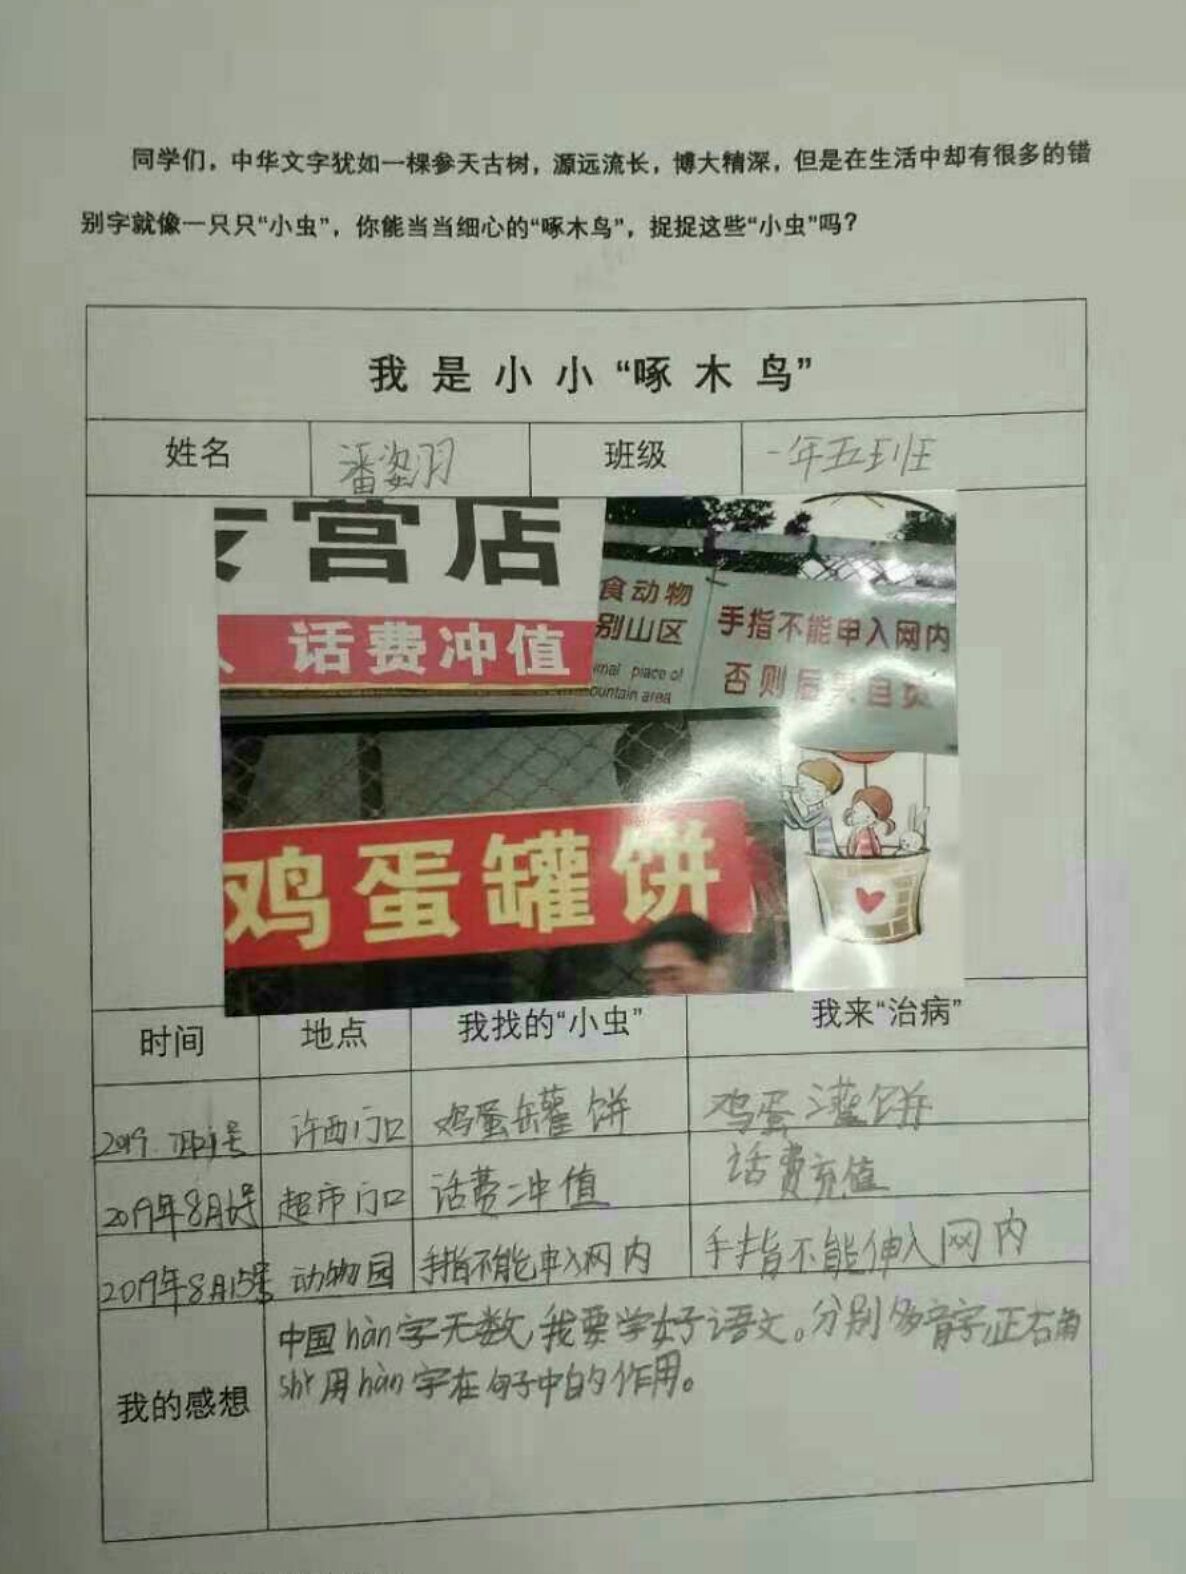 同学们，中华文字犹如一棵参天古树，源远流长，博大精深，但是在生活中却有很多的错
别字就像一只只“小虫”，你能当当细心的“啄木鸟”，捉捉这些“小虫”吗？
我是小小“啄木鸟”
姓名 潘姿羽 班级 一年五班
营店
话费冲值
食动物
别山区
imal place of
ountain area
手指不能申入网内
否则后果自负
鸡蛋罐饼
时间 地点 我找的“小虫” 我来“治病”
2019. 许西门口 鸡蛋罐饼 鸡蛋灌饼
2019年8月 号 超市门口 话费冲值 话费充值
2019年8月15号 动物园 手指不能申入网内 手指不能伸入网内
我的感想
中国hàn字无数,我要学好语文。分别多音字,正右角
用hàn字在句子中的作用。